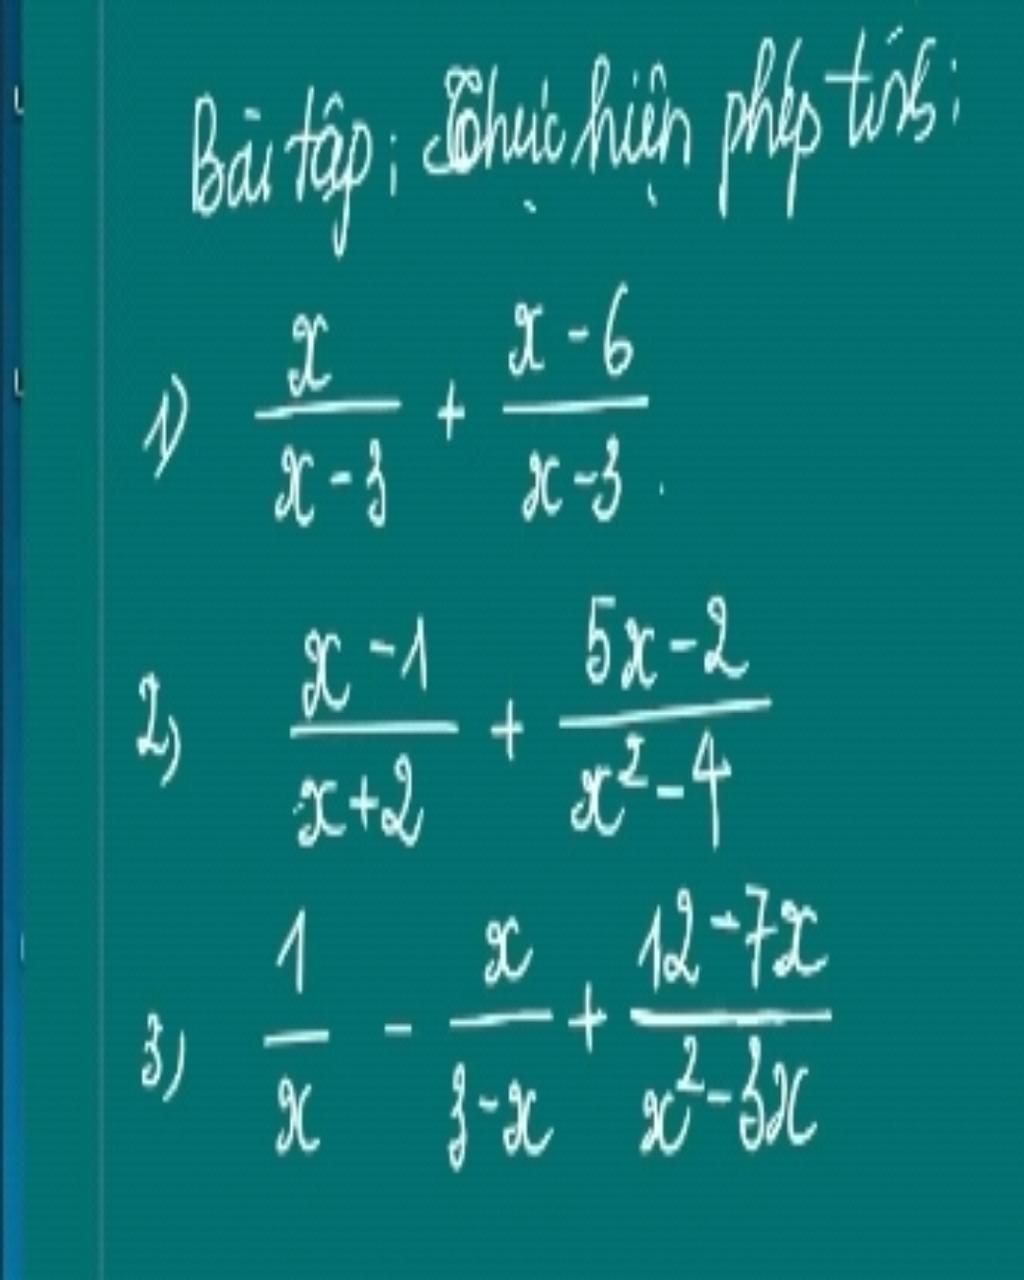 Bài tập: Thực hiện phép tính:
1) x/(x-3) + (x-6)/(x-3).
2) (x-1)/(x+2) + (5x-2)/(x²-4)
3) 1/x - x/(3-x) + (12-7x)/(x²-3x)